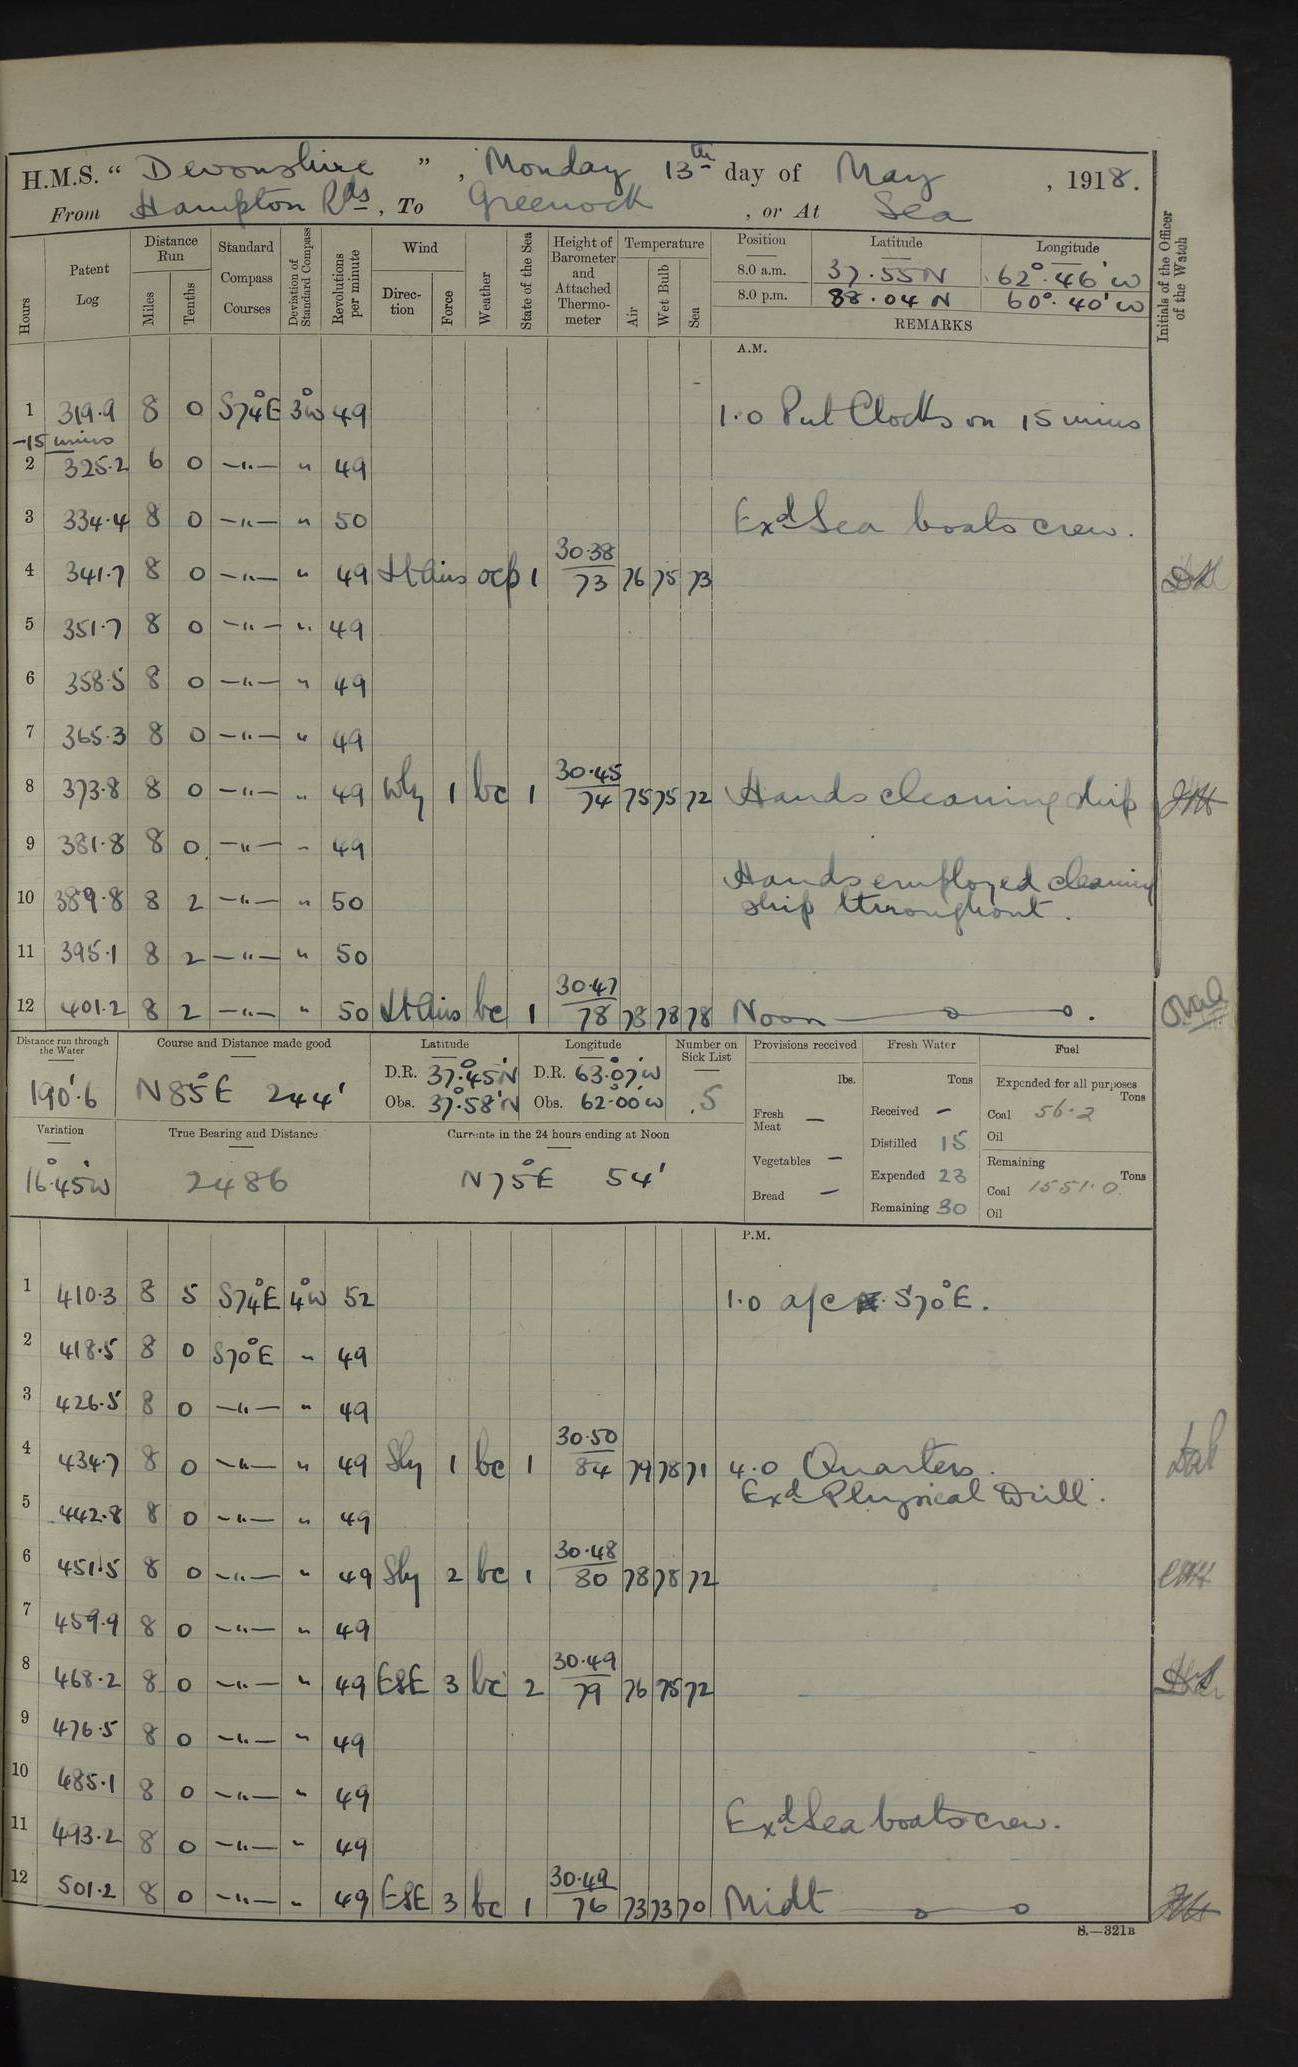 H.M.S. “ Devonshire ” , Monday 13th day of May , 1918.
From Hampton Rds , To Greenock , or At Sea
Hours
Patent Log
Distance Run
Miles
Tenths
Standard Compass Courses
Deviation of Standard Compass
Revolutions per minute
Wind
Direc-tion
Force
Weather
State of the Sea
Height of Barometer and Attached Thermo-meter
Temperature
Air
Wet Bulb
Sea
Position Latitude Longitude
8.0 a.m. 37.55 N 62°.46' W
8.0 p.m. 38.04 N 60°.40' W
REMARKS
Initials of the Officer of the Watch
A.M.
1 319.9 8 0 S74°E 3°W 49 1.0 Put Clocks on 15 mins
-15 mins
2 325.2 6 0 —"— " 49
3 334.4 8 0 —"— " 50 Exd Sea boats crew.
4 341.7 8 0 —"— " 49 Lt Airs ocp 1 30.38 73 76 75 73
5 351.7 8 0 —"— " 49
6 358.5 8 0 —"— " 49
7 365.3 8 0 —"— " 49
8 373.8 8 0 —"— " 49 Wly 1 bc 1 30.45 74 75 75 72 Hands cleaning ship
9 381.8 8 0 —"— " 49
10 389.8 8 2 —"— " 50 Hands employed cleaning
ship throughout.
11 395.1 8 2 —"— " 50
12 401.2 8 2 —"— " 50 Lt Airs bc 1 30.47 78 78 78 78 Noon
Distance run through the Water
190'.6
Course and Distance made good
N 85°E 244'
Latitude
D.R. 37°.45'N
Obs. 37°.58'N
Longitude
D.R. 63°.07'W
Obs. 62°.00'W
Number on Sick List
5
Provisions received
lbs.
Fresh Meat —
Vegetables —
Bread —
Fresh Water
Tons
Received —
Distilled 15
Expended 23
Remaining 30
Fuel
Expended for all purposes
Tons
Coal 56.2
Oil
Remaining
Tons
Coal 1551.0
Oil
Variation
16°.45'W
True Bearing and Distance
2486
Currents in the 24 hours ending at Noon
N 75°E 54'
P.M.
1 410.3 8 5 S74°E 4°W 52 1.0 a/c S70°E.
2 418.5 8 0 S70°E " 49
3 426.5 8 0 —"— " 49
4 434.7 8 0 —"— " 49 Sly 1 bc 1 30.50 84 79 78 71 4.0 Quarters.
Exd Physical Drill.
5 442.8 8 0 —"— " 49
6 451.5 8 0 —"— " 49 Sly 2 bc 1 30.48 80 78 78 72
7 459.9 8 0 —"— " 49
8 468.2 8 0 —"— " 49 ESE 3 bc 2 30.49 79 76 75 72
9 476.5 8 0 —"— " 49
10 485.1 8 0 —"— " 49
11 493.2 8 0 —"— " 49 Exd Sea boats crew.
12 501.2 8 0 —"— " 49 ESE 3 bc 1 30.49 76 73 73 70 Midt
S.—321B